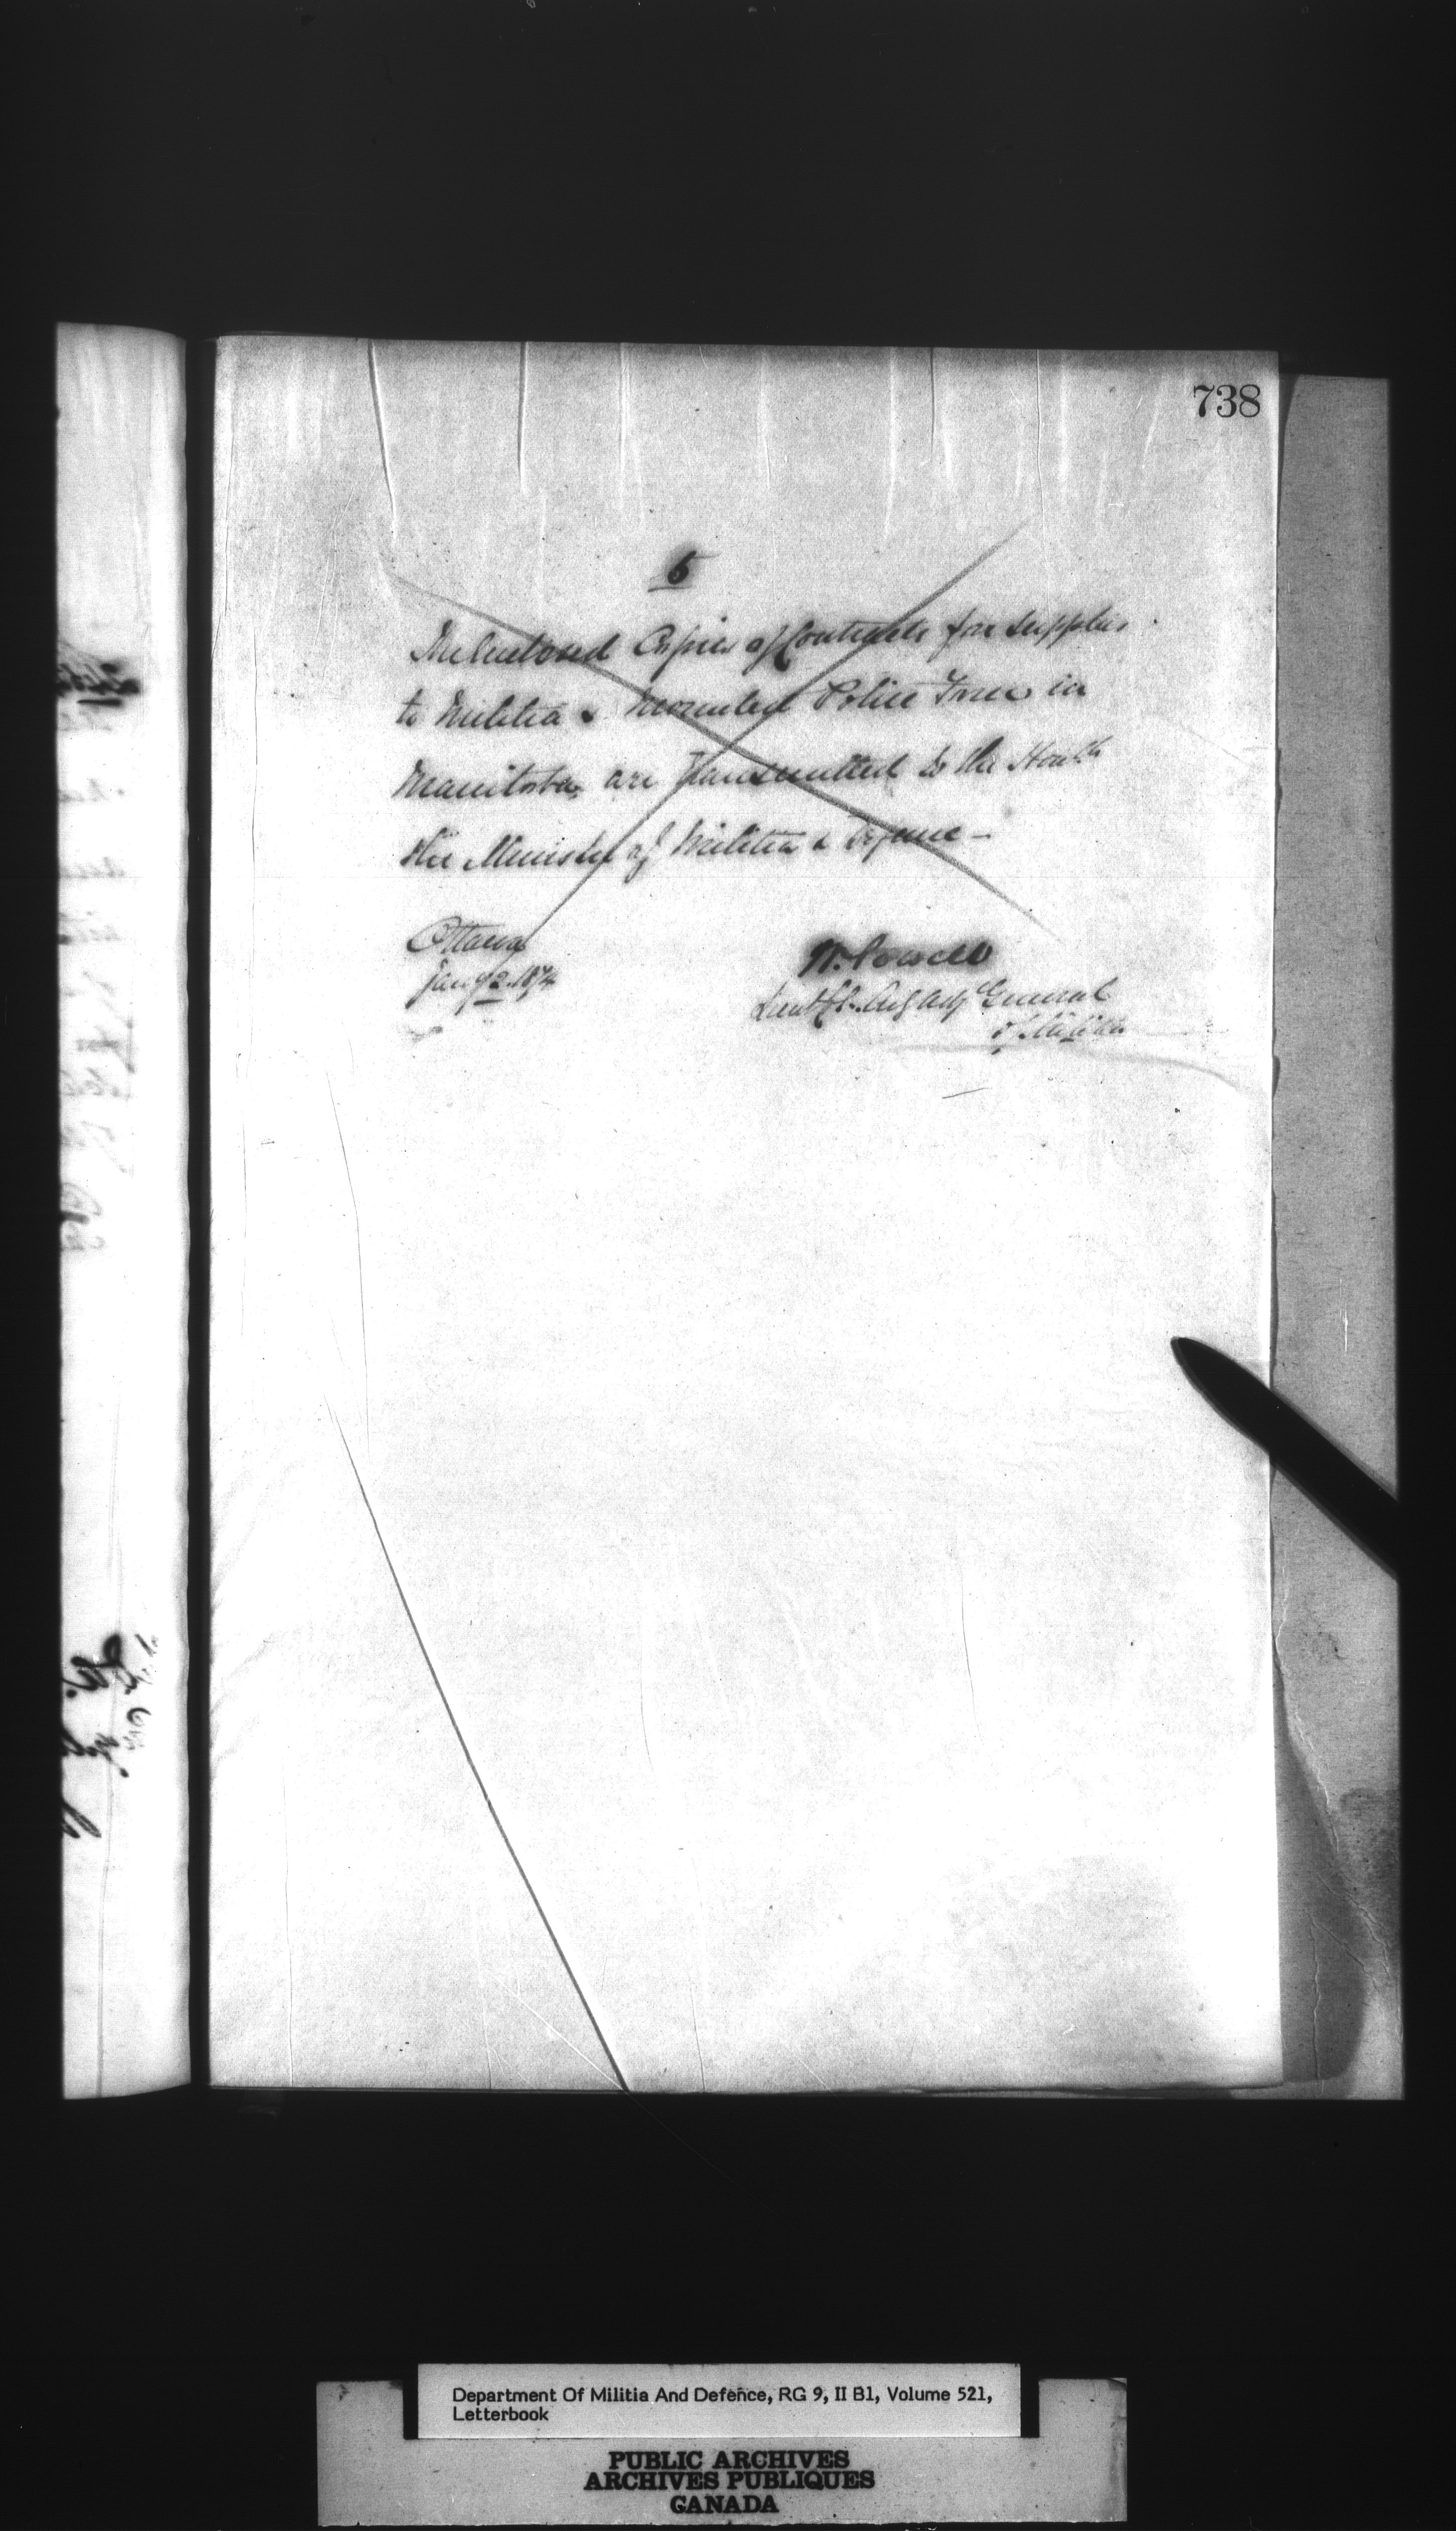 738
5
The Enclosed Copies of Contracts for supplies
to Militia & Mounted Police Force in
Manitoba, are transmitted to the Honble
the Minister of Militia & Defence -
Ottawa
Jany 2. 1874
W. Powell
Lieut Col. Actg Adjt General
of Militia
Department Of Militia And Defence, RG 9, II B1, Volume 521,
Letterbook
PUBLIC ARCHIVES
ARCHIVES PUBLIQUES
CANADA